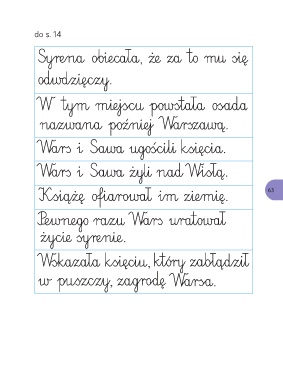 do s. 14
Syrena obiecała, że za to mu się
odwdzięczy.
W tym miejscu powstała osada
nazwana później Warszawą.
Wars i Sawa ugościli księcia.
Wars i Sawa żyli nad Wisłą.
Książę ofiarował im ziemię.
Pewnego razu Wars uratował
życie syrenie.
Wskazała księciu, który zabłądził
w puszczy, zagrodę Warsa.
63